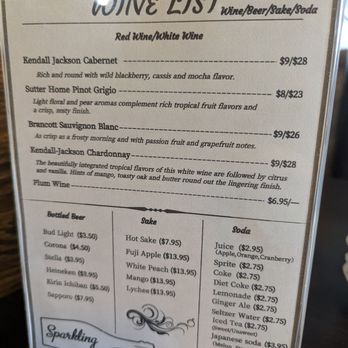 WINE LIST Wine/Beer/Sake/Soda
Red Wine/White Wine
Kendall Jackson Cabernet $9/$28
Rich and round with wild blackberry, cassis and mocha flavor.
Sutter Home Pinot Grigio $8/$23
Light floral and pear aromas complement rich tropical fruit flavors and
a crisp, zesty finish.
Brancott Sauvignon Blanc $9/$26
As crisp as a frosty morning and with passion fruit and grapefruit notes.
Kendall-Jackson Chardonnay $9/$28
The beautifully integrated tropical flavors of this white wine are followed by citrus
and vanilla. Hints of mango, toasty oak and butter round out the lingering finish.
Plum Wine $6.95/—
Bottled Beer
Bud Light ($3.50)
Corona ($4.50)
Stella ($3.95)
Heineken ($3.95)
Kirin Ichiban ($5.50)
Sapporo ($7.95)
Sparkling
Sake
Hot Sake ($7.95)
Fuji Apple ($13.95)
White Peach ($13.95)
Mango ($13.95)
Lychee ($13.95)
Soda
Juice ($2.95)
(Apple,Orange,Cranberry)
Sprite ($2.75)
Coke ($2.75)
Diet Coke ($2.75)
Lemonade ($2.75)
Ginger Ale ($2.75)
Seltzer Water ($2.75)
Iced Tea ($2.75)
(Sweet/Unsweet)
Japanese soda ($3.95)